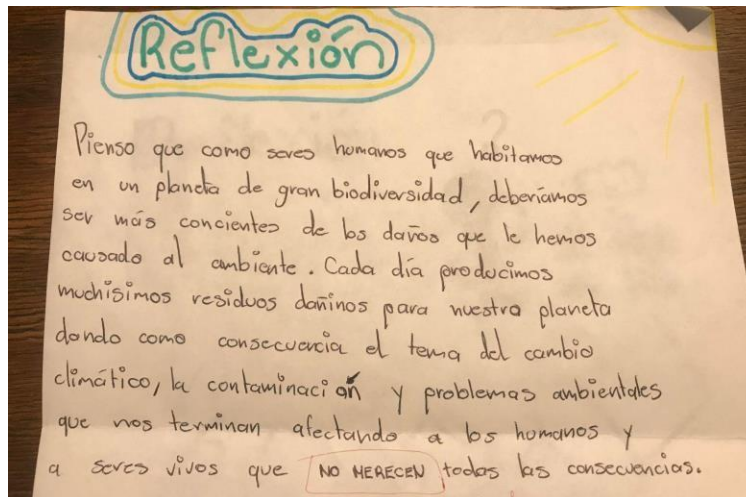 Reflexión
Pienso que como seres humanos que habitamos
en un planeta de gran biodiversidad, deberíamos
ser más concientes de los daños que le hemos
causado al ambiente. Cada día producimos
muchisimos residuos dañinos para nuestro planeta
dando como consecuencia el tema del cambio
climático, la contaminación y problemas ambientales
que nos terminan afectando a los humanos y
a seres vivos que NO MERECEN todas las consecuencias.